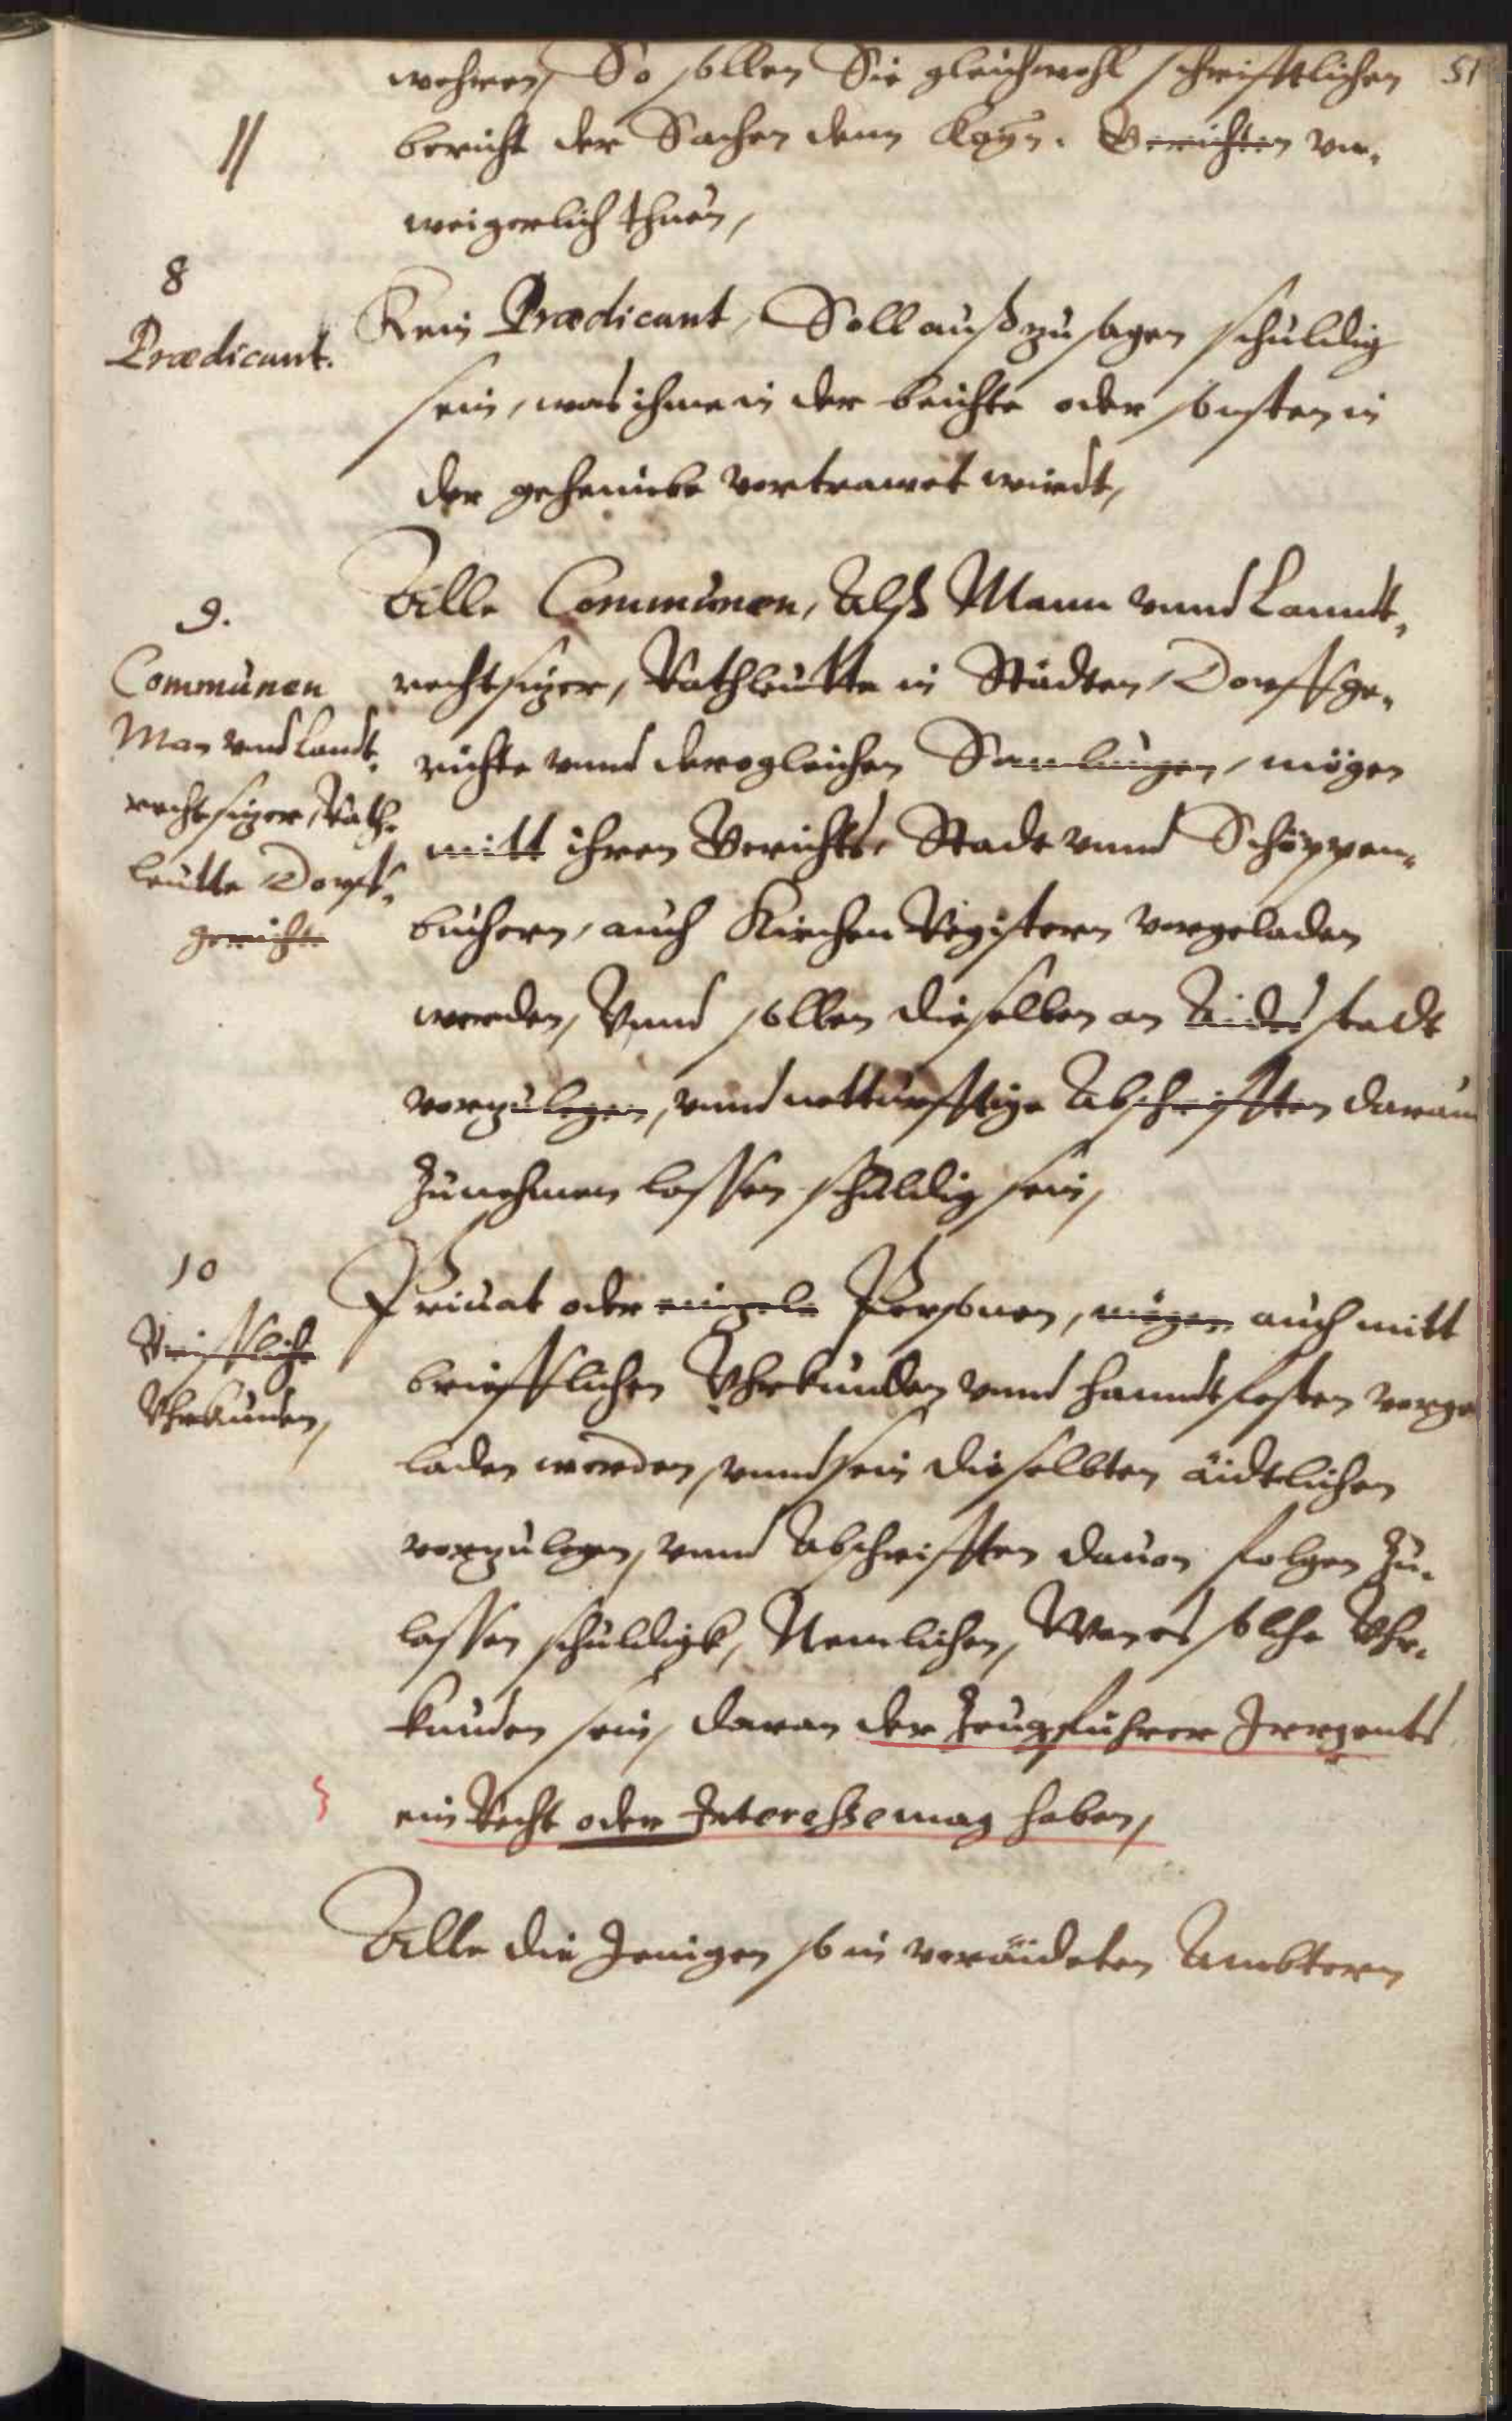 51
wehren, So sollen Sie gleichwohl schrifftlichen
bericht der Sachen denn Kayn. Gerichten vn-
weigerlich thuen,
8
Prædicant.
Kein Prædicant, Soll außzusagen schuldig
sein, was ihme in der beichte oder sonsten in
der geheimbe vertrawet wirdt,
9.
Communen
Man vnd Landt-
rechtsizer, Rath-
leutte Dorff-
gerichte
Alle Communen, Alß Mann vnnd Lanndt-
rechtsizer, Rathleutte in Städten, Dorffge-
richte vnnd derogleichen Samlungen, mögen
mitt ihren Gerichts- Stadt vnnd Schöppen-
büchern, auch Kirchen Registern vorgeladen
werden, Vnnd sollen dieselben an Aides stadt
vorzulegen, vnnd notturfftige Abschrifften daraus
Zunehmen lassen schuldig sein,
10
Briffliche
Vhrkunden,
Priuat oder einzele Personen, mögen auch mitt
briefflichen Vhrkunden vnnd Hanndtfesten vorge
laden werden, vnnd sein dieselbten äidtlichen
vorzulegen, vnnd Abschrifften dauon folgen Zu-
lassen schuldigk, Nemlichen, Wan es solche Vhr-
kunden sein, daran der Zeugführer Irrgents
ein Recht oder Interesse mag haben,
Alle die Jenigen so in veräideten Ambtern